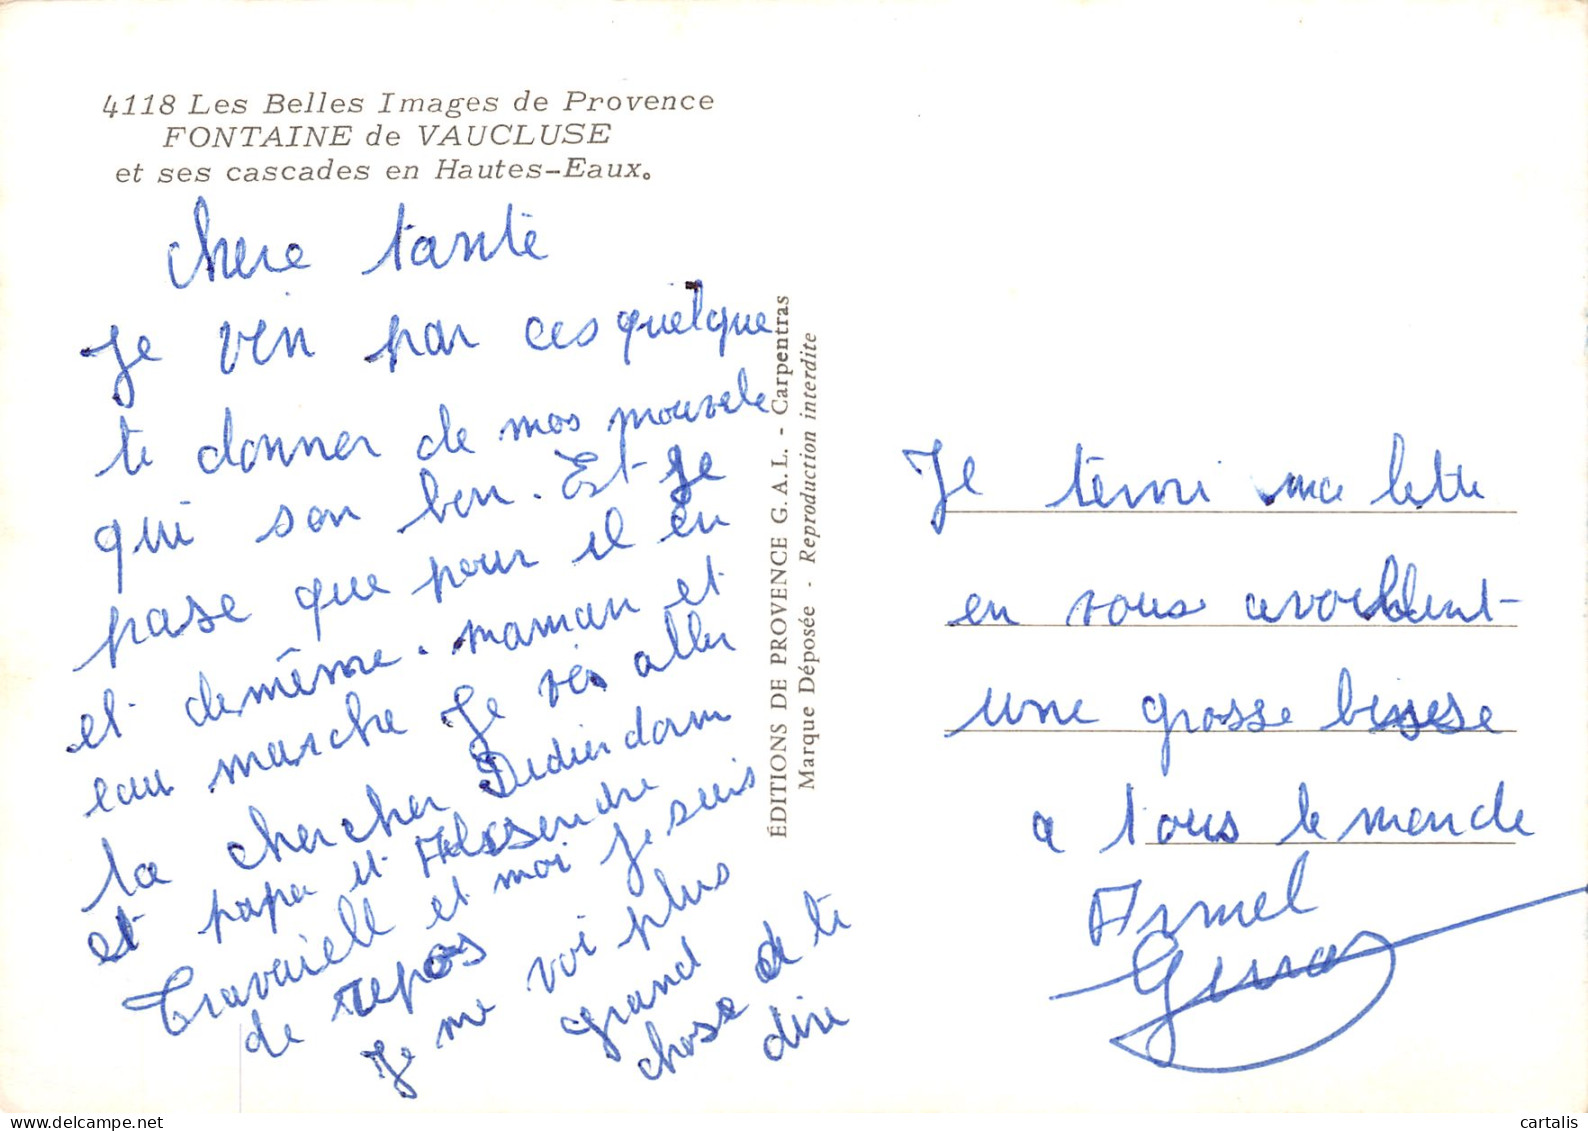 4118 Les Belles Images de Provence
FONTAINE de VAUCLUSE
et ses cascades en Hautes-Eaux.
chere tante
Je vin par ces quelque
te donner de mos nouvele
qui son bon. Est Je
pase que pour il en
et de même. maman et
eau marche Je vis aller
la chercher Didier dam
et papa et
travaiell et moi Je suis
de repos
Je me voi plus
grand
chose de te
dire
ÉDITIONS DE PROVENCE G.A.L. - Carpentras
Marque Déposée - Reproduction interdite
Je termi ma lette
en vous
une grosse
a tous le monde
Armel
cartalis